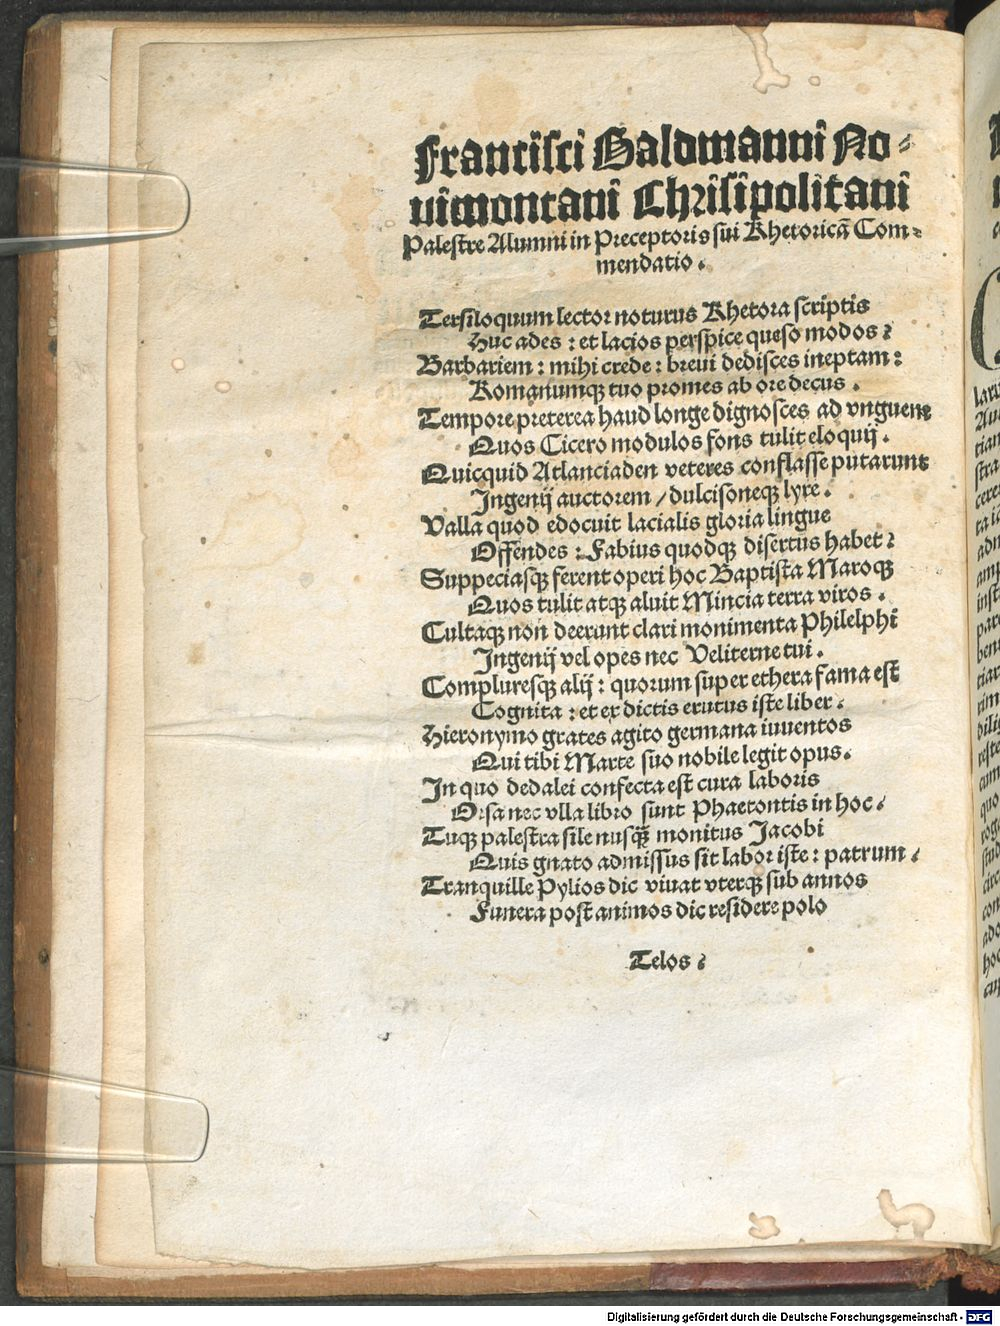 Francisci Galdmanni No-
uimontani Chrisipolitani
Palestre Alumni in Preceptoris sui Rhetoricā Com-
mendatio.
Tersiloquum lector noturus Rhetora scriptis
Huc ades: et lacios perspice queso modos:
Barbariem: mihi crede: breui dedisces ineptam:
Romanumqꝫ tuo promes ab ore decus.
Tempore preterea haud longe dignosces ad vnguem
Quos Cicero modulos fons tulit eloquij.
Quicquid Atlanciaden veteres conflasse putarunt
Ingenij auctorem / dulcisoneqꝫ lyre.
Valla quod edocuit lacialis gloria lingue
Offendes: Fabius quodqꝫ disertus habet:
Suppeciasqꝫ ferent operi hoc Baptista Maroqꝫ
Quos tulit atqꝫ aluit Mincia terra viros.
Cultaqꝫ non deerunt clari monimenta Philelphi
Ingenij vel opes nec Veliterne tui.
Compluresqꝫ alij: quorum super ethera fama est
Cognita: et ex dictis erutus iste liber.
Hieronymo grates agito germana iuuentos
Qui tibi Marte suo nobile legit opus.
In quo dedalei confecta est cura laboris
Orsa nec vlla libro sunt Phaetontis in hoc.
Tuqꝫ palestra sile nusqꝫ̄ monitus Jacobi
Quis gnato admissus sit labor iste: patrum.
Tranquille Pylios dic viuat vterqꝫ sub annos
Funera post animos dic residere polo
Telos.
Digitalisierung gefördert durch die Deutsche Forschungsgemeinschaft - DFG